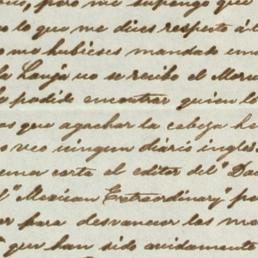 pero me supongo que
lo que me dices respecto á l
me hubieses mandado un
la Lonja no se recibe el Mor
podido encontrar quien l
que agachar la cabeza h
veo ningun diario ingles
corte el editor del "Da
"Mexican Extraordinary" p
para desvanecer las ma
que han sido avidamente